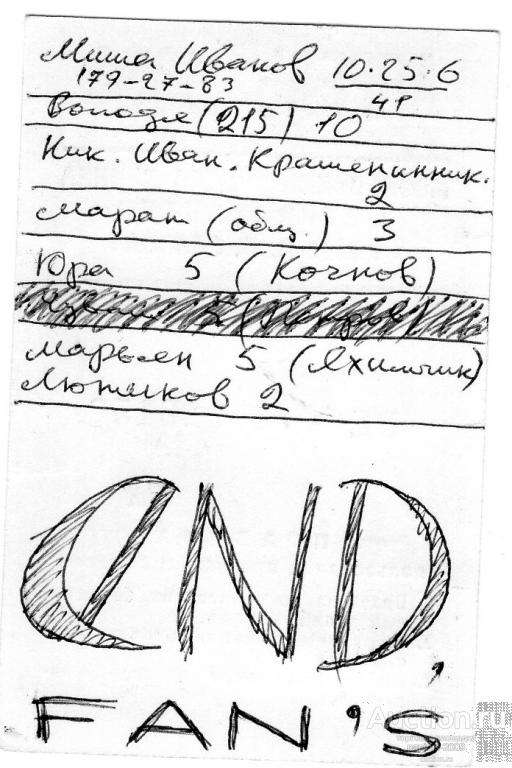 Миша Иванов 10.25.6
179-27-83 4р
Володя (215) 10
Ник. Иван. Крашенинник.
2
Марат (общ.) 3
Юра 5 (Кочнов)
Марьян 5 (Яхимчик)
Лютиков 2
DND,
FAN'S
Auction.ru